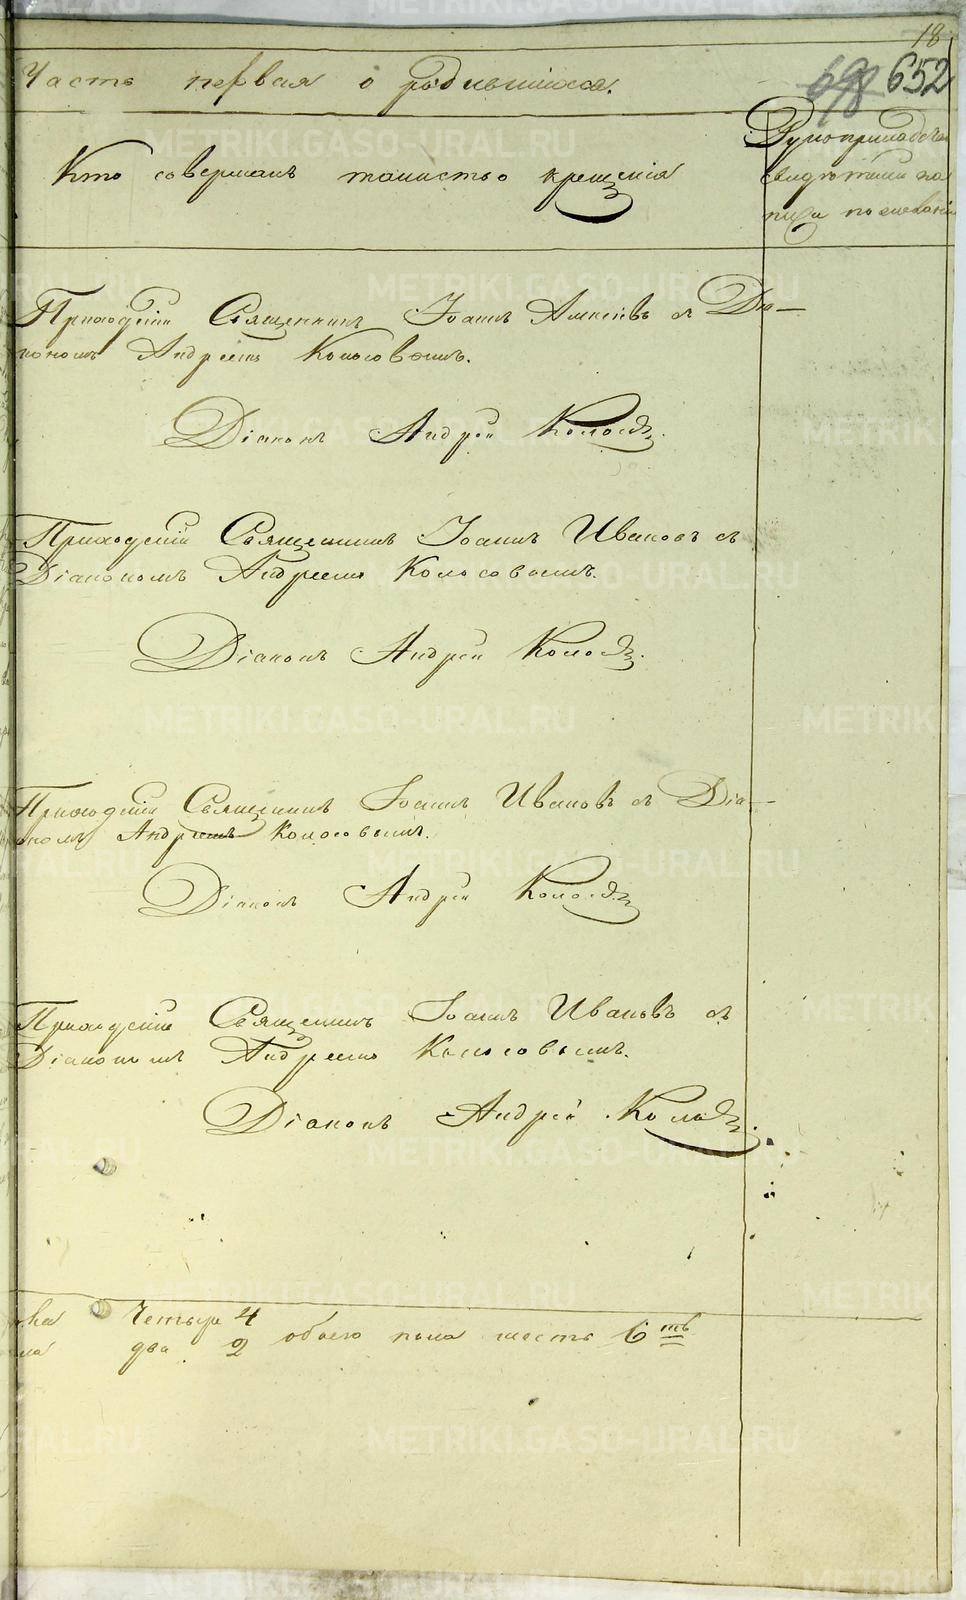 18
Часть первая о родившихся.
698 652
Кто совершалъ таинство крещенія
Рукоприкладство
свидѣтелей по
Приходскій Священникъ Іоаннъ Алексѣевъ съ Діа–
кономъ Андреемъ Колосовымъ.
Діаконъ Андрей Колосовъ.
Приходскій Священникъ Іоаннъ Ивановъ съ
Діакономъ Андреемъ Колосовымъ.
Діаконъ Андрей Колосовъ.
Приходскій Священникъ Іоаннъ Ивановъ съ Діа–
кономъ Андреемъ Колосовымъ.
Діаконъ Андрей Колосовъ
Приходскій Священникъ Іоаннъ Ивановъ съ
Діакономъ Андреемъ Колосовымъ.
Діаконъ Андрей Колосовъ.
Четыре 4
два 2 обоего пола шесть 6ть
METRIKI.GASO-URAL.RU